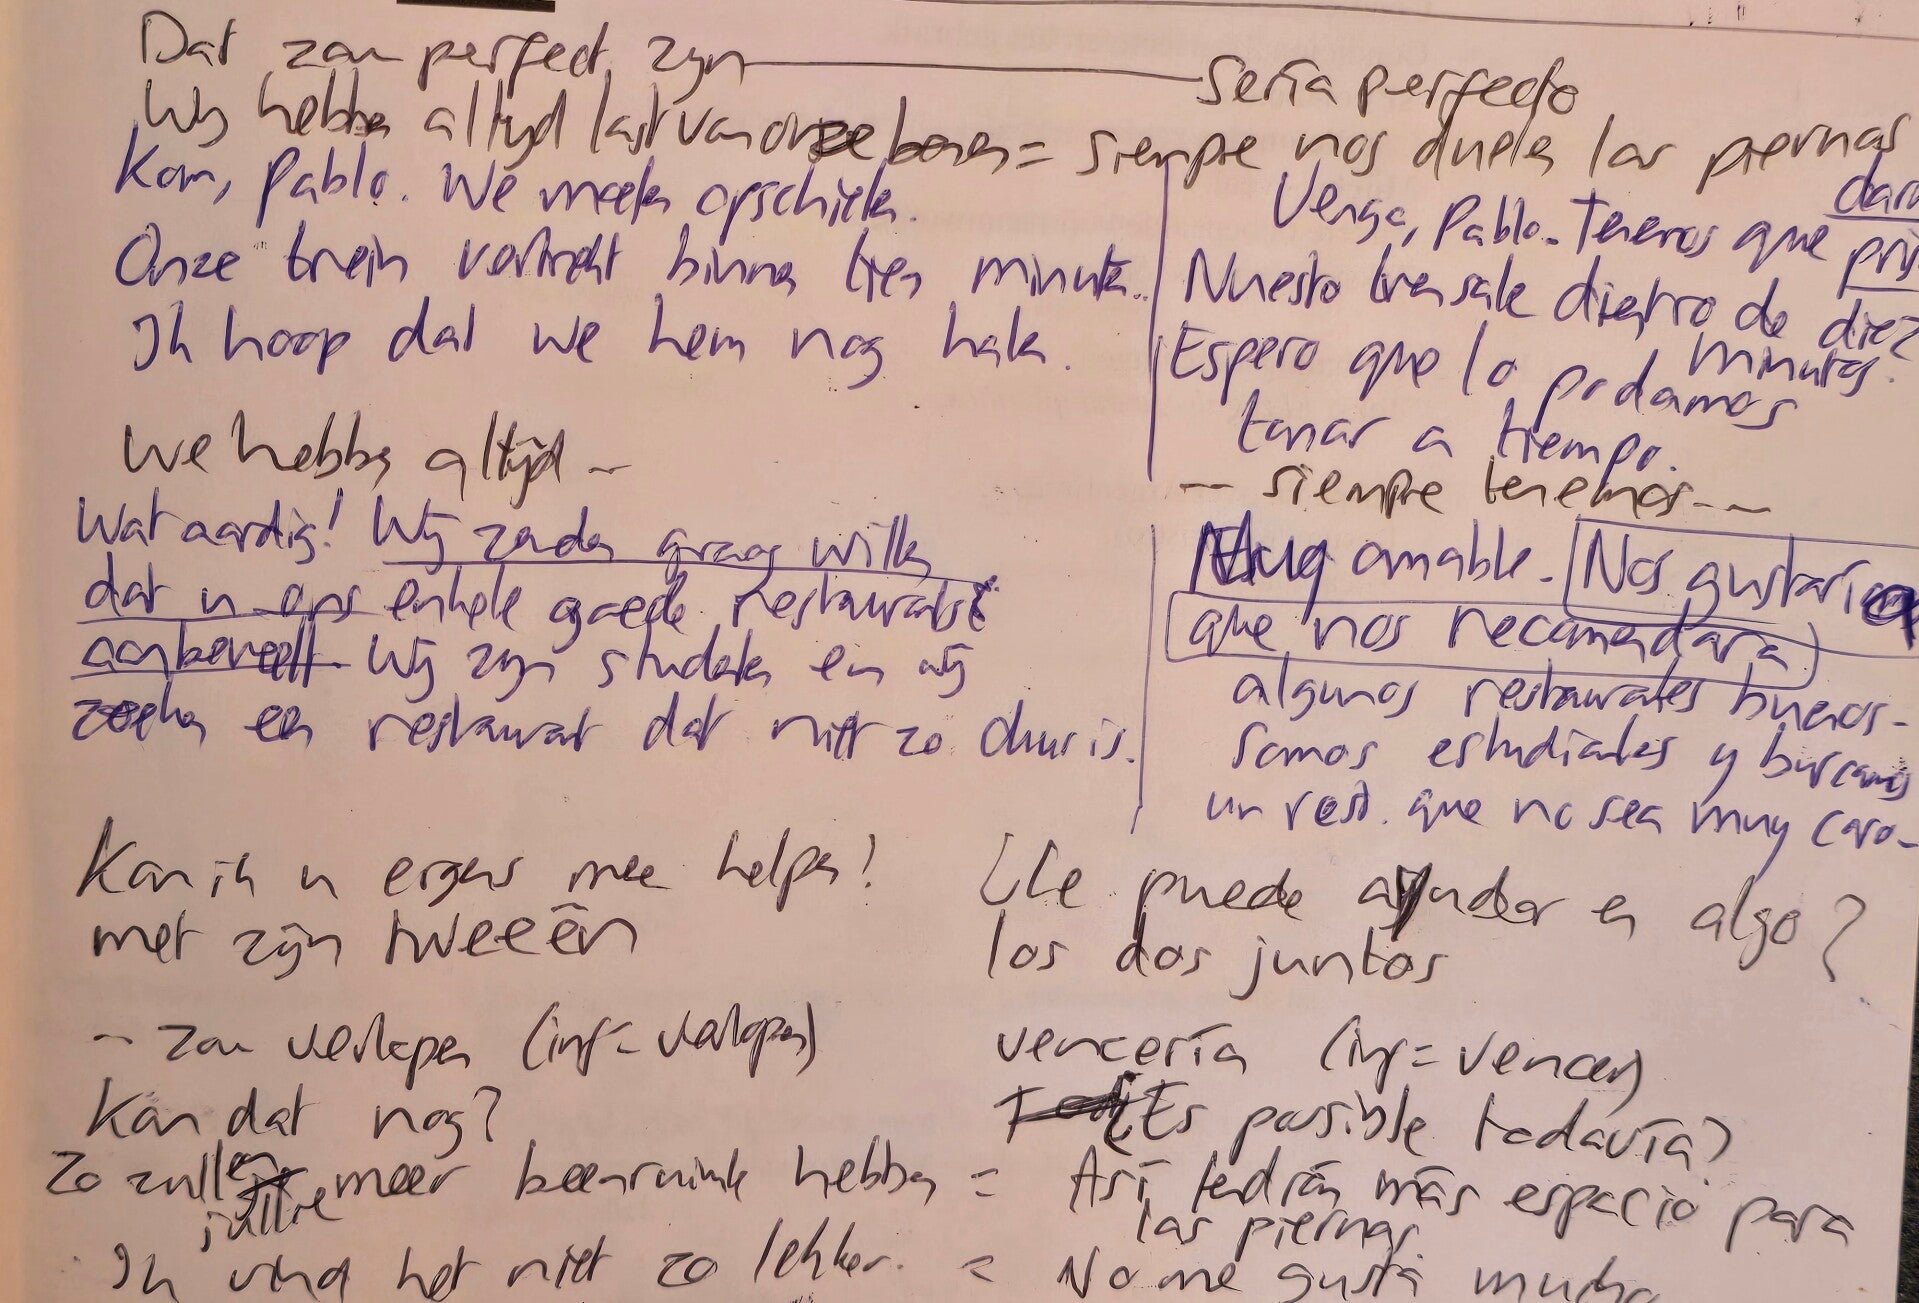 Dat zou perfect zijn — Sería perfecto
Wij hebben altijd last van onze benen = siempre nos duelen las piernas
Kom, Pablo. We moeten opschieten.
Onze trein vertrekt binnen tien minuten.
Ik hoop dat we hem nog halen.
Venga, Pablo. Tenemos que
Nuestro tren sale dientro de diez
minutos.
Espero que lo podamos
tomar a tiempo.
We hebben altijd ~
~ siempre tenemos ~
Wat aardig! Wij zouden graag willen
dat u ons enkele goede restaurants
aanbeveelt. Wij zijn studenten en wij
zoeken een restaurant dat niet zo duur is.
Muy amable. Nos gustaría
que nos recomendara
algunos restaurantes buenos.
Somos estudiantes y buscamos
un rest. que no sea muy caro.
Kan ik u ergens mee helpen? ¿Le puede ayudar en algo?
met zijn tweeën los dos juntos
~ zou verlopen (inf = verlopen) vencería (inf = vencer)
Kan dat nog? ¿Es posible todavía?
Zo zullen jullie meer beenruimte hebben = Así tendrán más espacio para
las piernas.
Ik vind het niet zo lekker. = No me gusta mucho